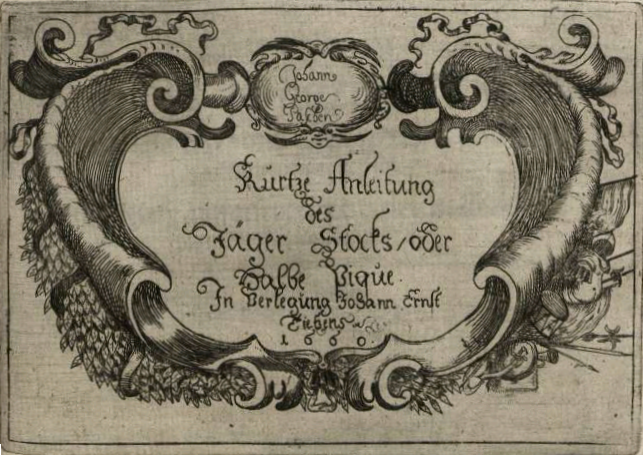 Johann
George
Paſchen
Kurtze Anleitung
des
Jäger Stocks/oder
Halbe Pique.
In Verlegung Johann Ernſt
1660.